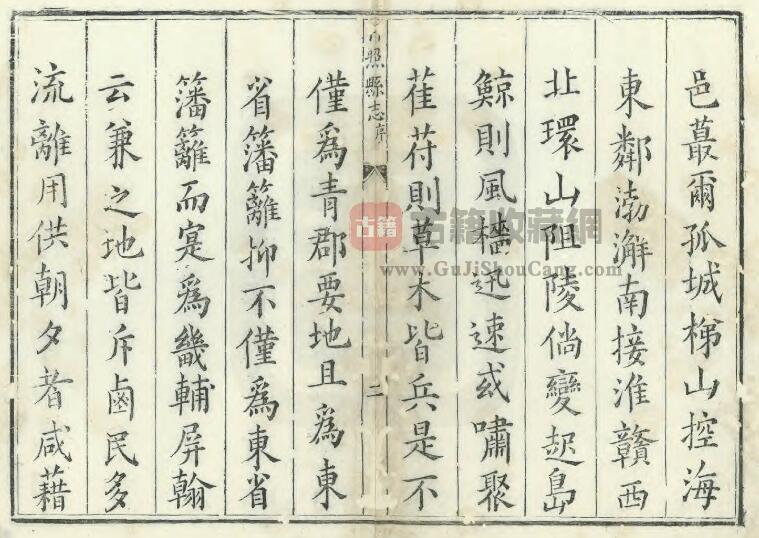 邑蕞爾孤城梯山控海
東鄰渤澥南接淮贛西
北環山阻陵倘變起島
鯨則風檣迅速或嘯聚
萑苻則草木皆兵是不
日照縣志序
二
僅爲青郡要地且爲東
省籓籬抑不僅爲東省
籓籬而寔爲畿輔屏翰
云兼之地皆斥鹵民多
流離用供朝夕者咸藉
古籍
古籍收藏網
www.GuJiShouCang.com